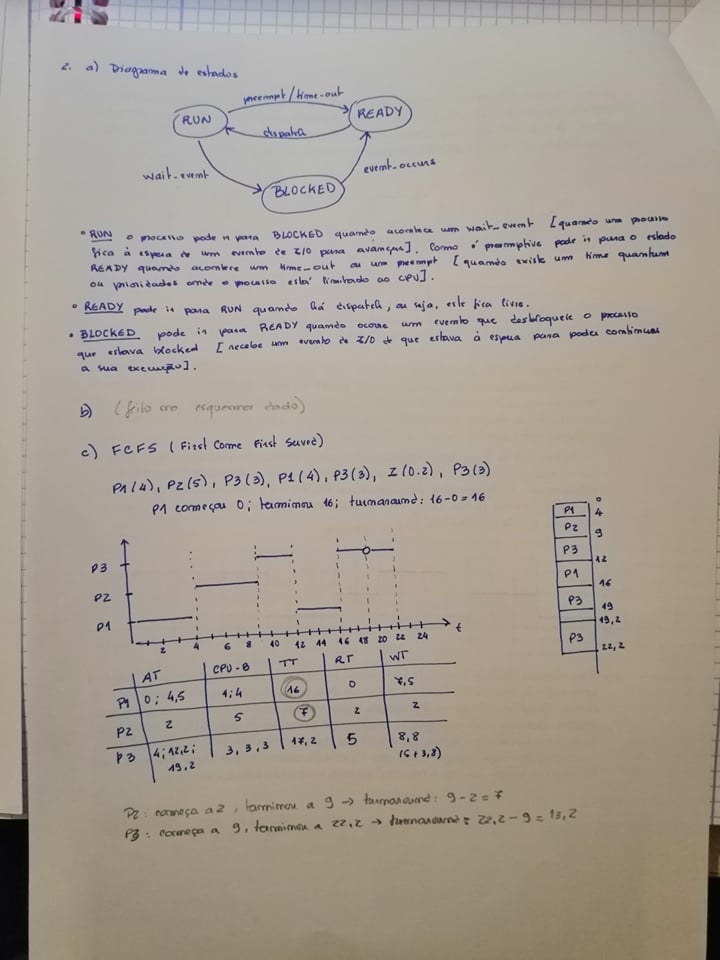 2. a) Diagrama de estados
preempt/time-out
RUN
READY
dispatch
wait_event
event_occurs
BLOCKED
• RUN o processo pode ir para BLOCKED quando acontece um wait_event [quando um processo
fica à espera de um evento de I/O para avançar]. Como é preemptive pode ir para o estado
READY quando acontece um time_out ou um preempt [quando existe um time quantum
ou prioridades onde o processo está limitado ao CPU].
• READY pode ir para RUN quando há dispatch, ou seja, este fica livre.
• BLOCKED pode ir para READY quando ocorre um evento que desbloqueie o processo
que estava blocked [recebe um evento de I/O de que estava à espera para poder continuar
a sua execução].
b) (feito no esquema dado)
c) FCFS (First Come First Served)
P1(4), P2(5), P3(3), P1(4), P3(3), I(0.2), P3(3)
P1 começou 0; terminou 16; turnaround: 16-0=16
P3
P2
P1
2 4 6 8 10 12 14 16 18 20 22 24 t
P1 0
P2 4
P3 9
P1 12
P3 16
19
19,2
P3 22,2
AT CPU-B TT RT WT
P1 0; 4,5 4; 4 16 0 7,5
P2 2 5 7 2 2
P3 4; 12,2; 3, 3, 3 17,2 5 8,8
19,2 (5+3,8)
P2: começa a 2, terminou a 9 → turnaround: 9-2=7
P3: começa a 9, terminou a 22,2 → turnaround: 22,2-9=13,2